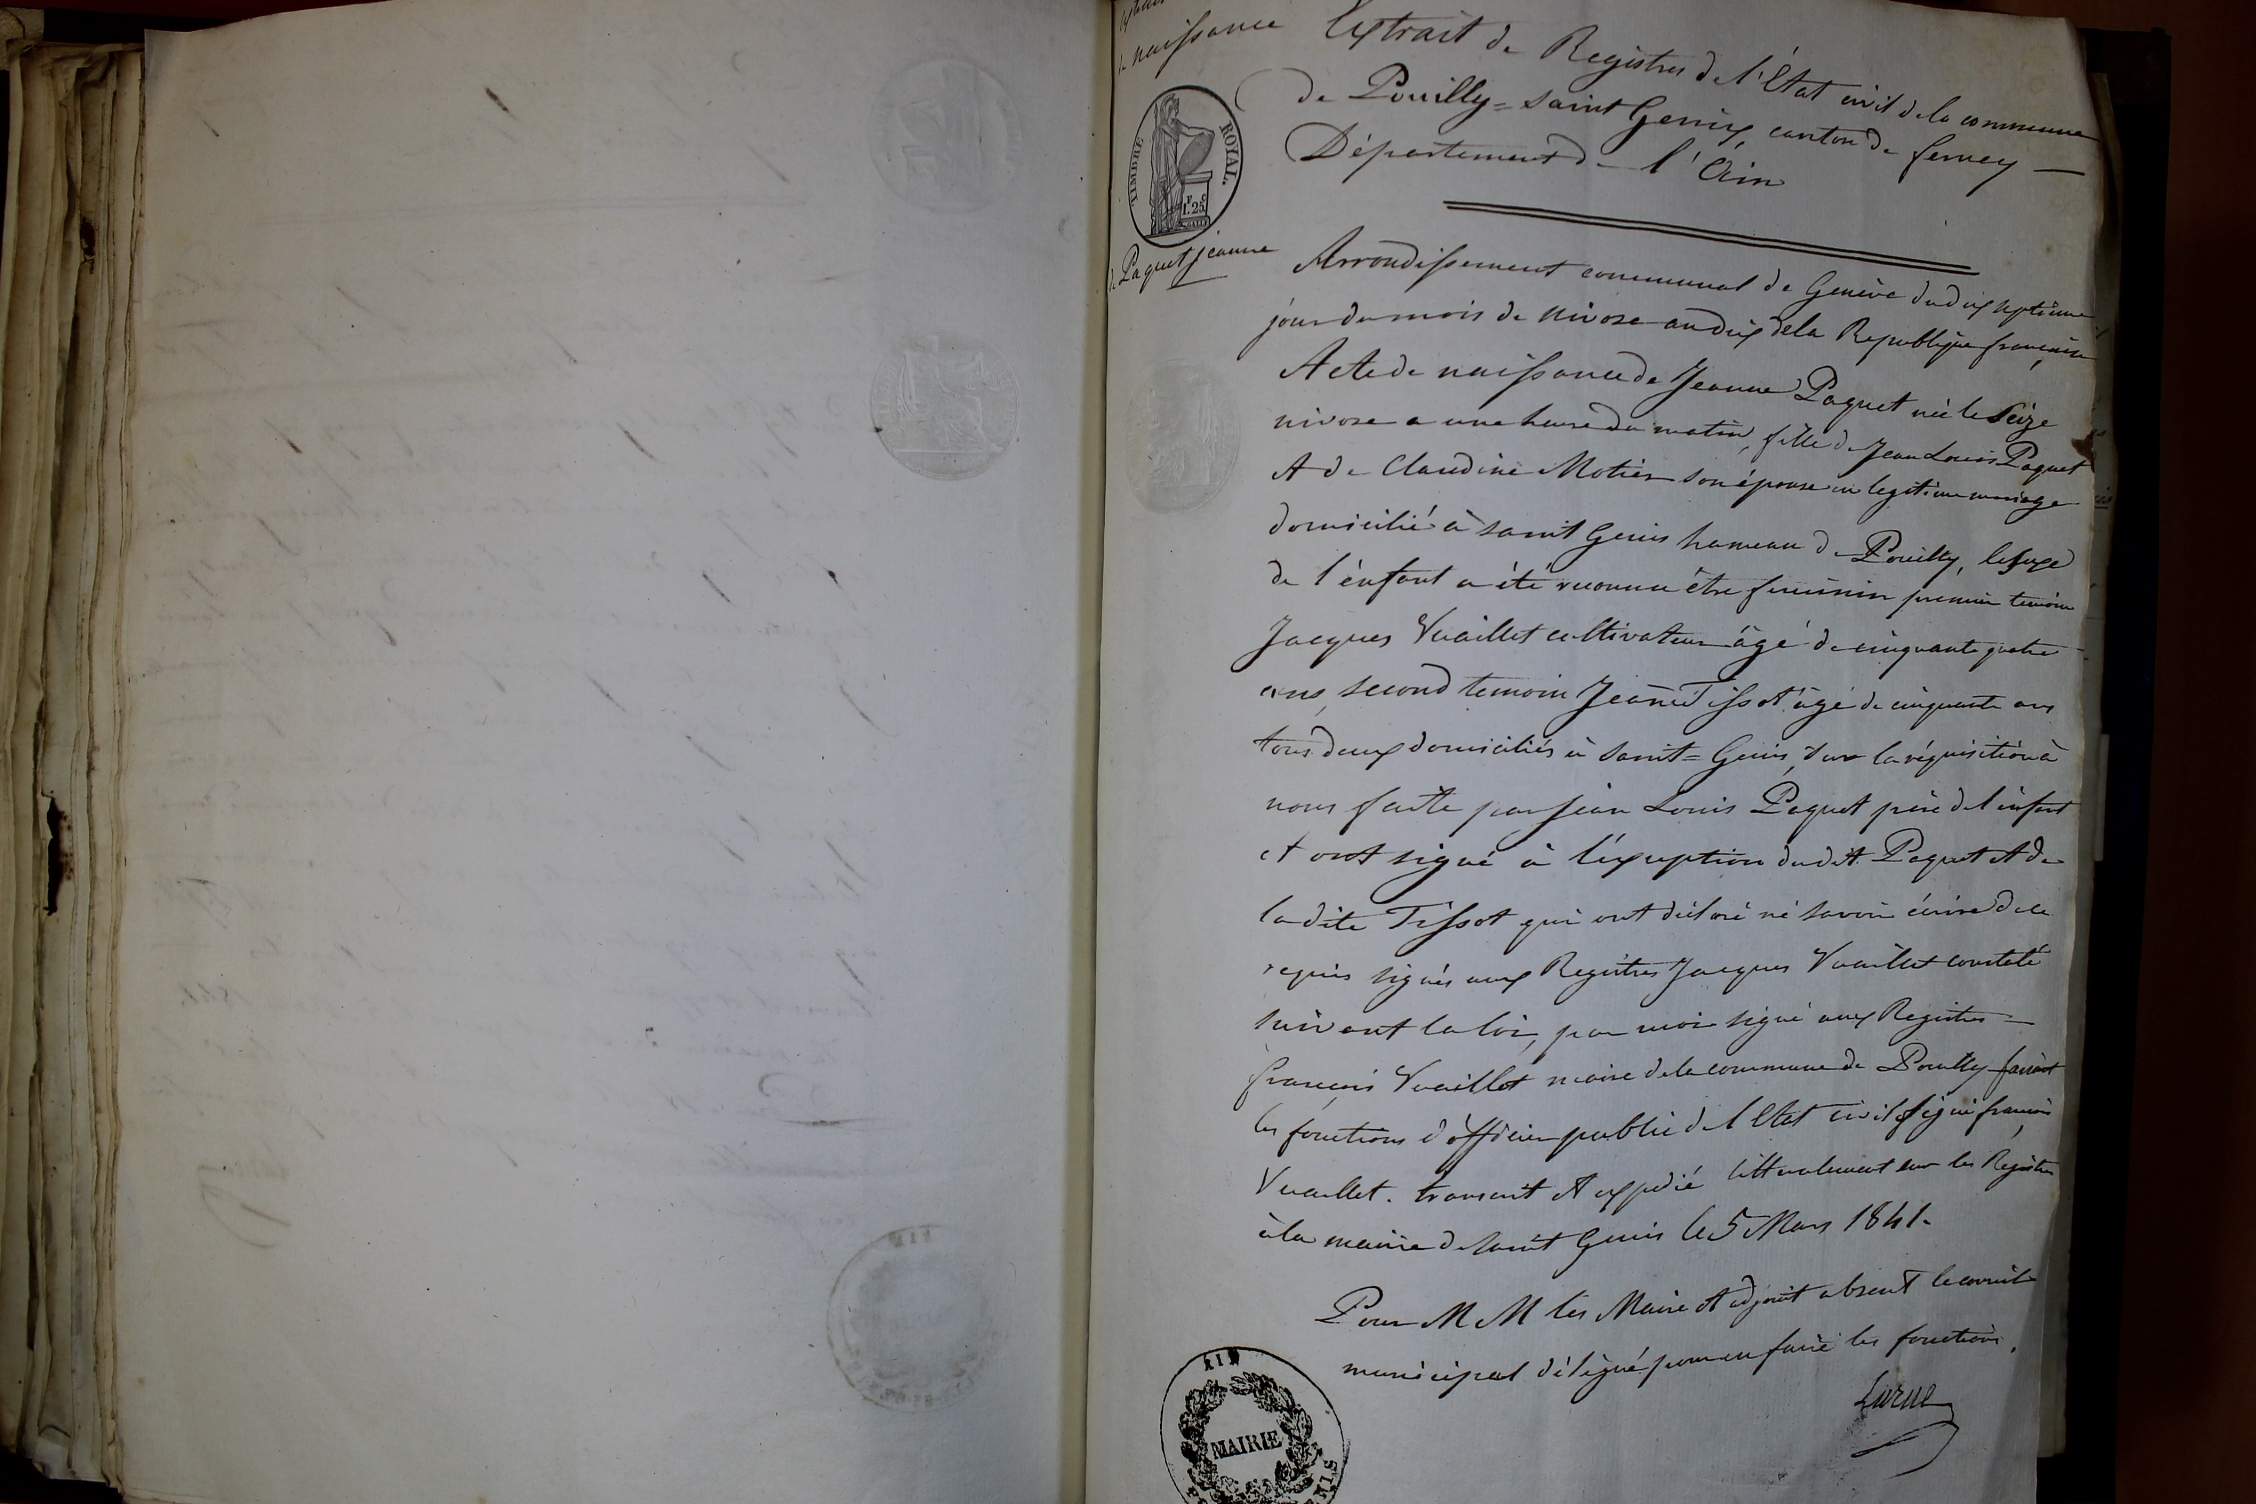 de naissance
TIMBRE ROYAL.
1.F 25.C
de Paquet jeanne
Extrait de Registres de l'Etat civil de la commune
de Pouilly = saint Genix, canton de ferney —
Département de l'Ain
Arrondissement communal de Genève du dix septième
jour du mois de nivose an dix de la Republique française
Acte de naissance de Jeanne Paquet née le Seize
nivose a une heure du matin, fille de Jean Louis Paquet
et de Claudine Motier son épouse en legitime mariage
domicilié à saint Genis hameau de Pouilly, le sexe
de l'énfant a été reconnu être feminin premier temoin
Jacques Vuaillet cultivateur âgé de cinquante quatre
ans, second temoin Jeanne Tissot âgé de cinquante ans
tous deux domiciliés à saint = Genis, sur la réquisition à
nous faite par jean Louis Paquet père de l'énfant
et ont signé à l'éxception dudit Paquet et de
la dite Tissot qui ont déclaré né savoir écrire de ce
requis signés aux Registres Jacques Vuaillet constaté
suivant la loi, par moi signé aux Registres —
françois Vuaillet maire de la commune de Pouilly faisant
les fonctions d'officier public de l'Etat civil signé françois
Vuaillet. transcrit et expédié littéralement sur les Registres
à la mairie de saint Genis le 5 Mars 1841.
Pour M M les Maire et adjoint absent le conseil
municipal délégué pour en faire les fonctions.
AIN
MAIRIE